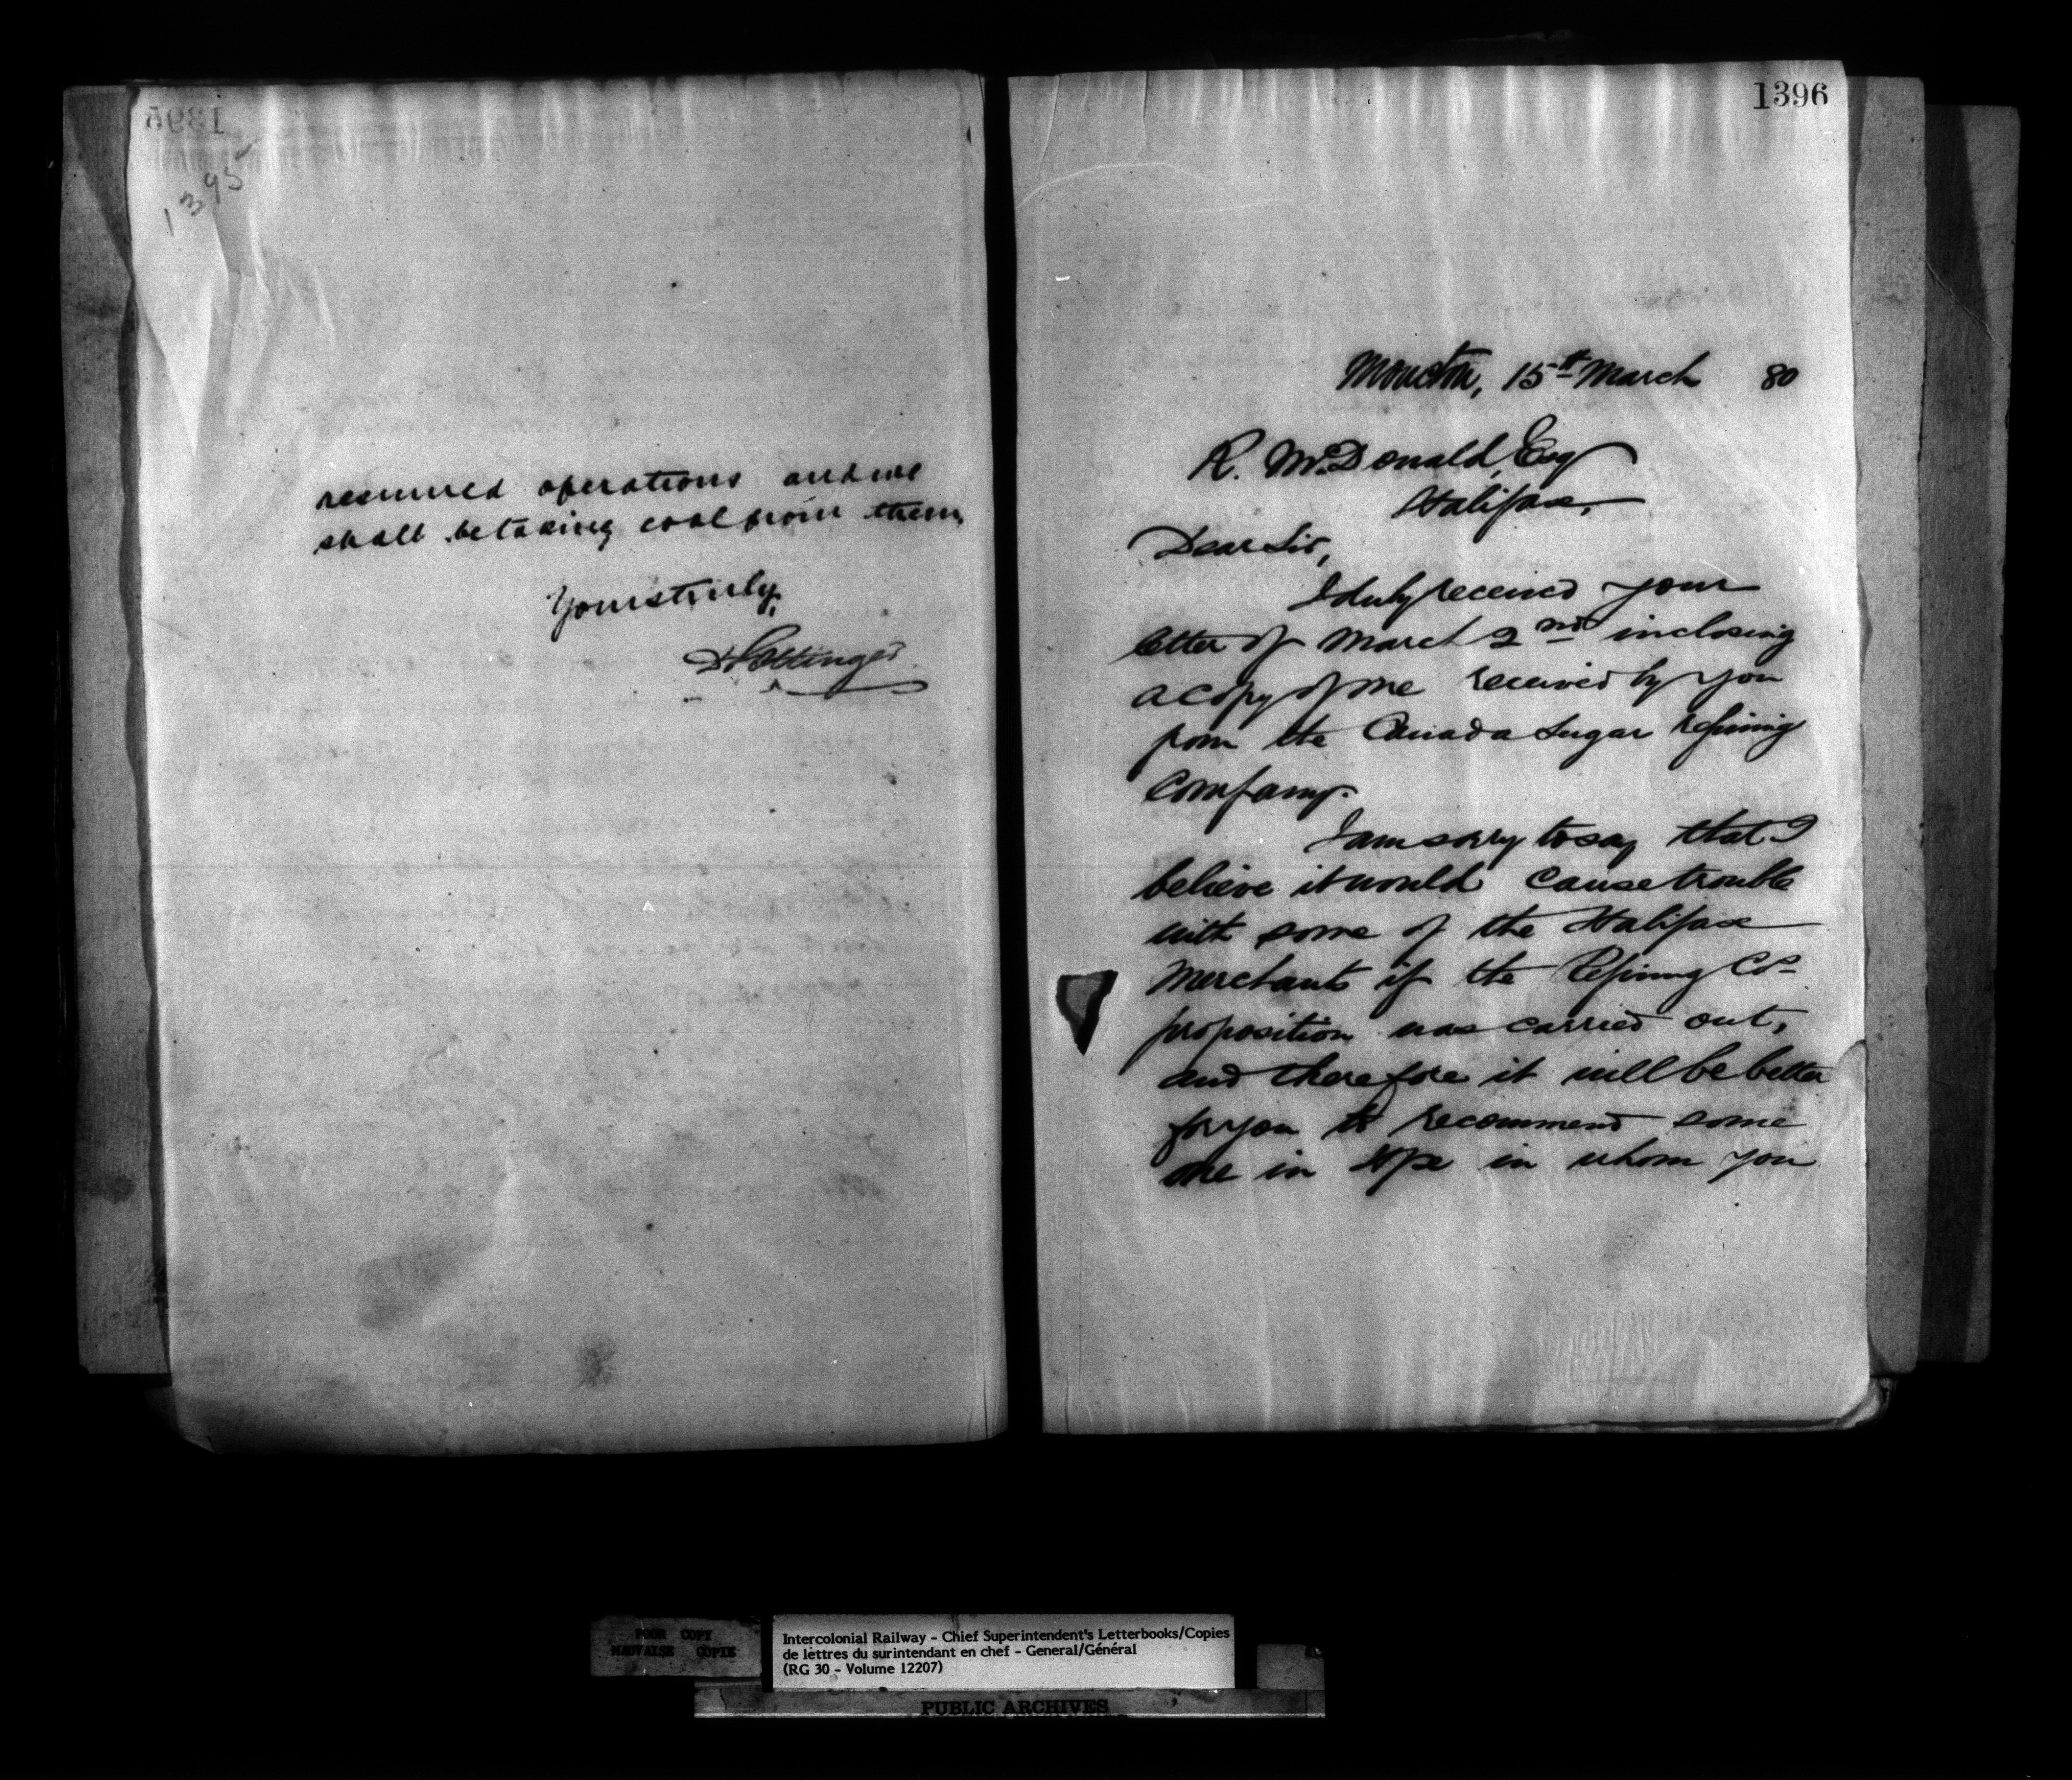 1395
1395
resumed operations and we
shall be taking coal from them
Yours truly,
D Pottinger
1396
Moncton, 15th March 80
R. McDonald, Esq
Halifax,
Dear Sir,
I duly received your
letter of March 2nd inclosing
a copy of one received by you
from the Canada Sugar refining
Company.
I am sorry to say that I
believe it would cause trouble
with some of the Halifax
Merchants if the Refining Co's
proposition was carried out,
and therefore it will be better
for you to recommend some
one in Hfx in whom you
POOR COPY
MAUVAISE COPIE
Intercolonial Railway - Chief Superintendent's Letterbooks/Copies
de lettres du surintendant en chef - General/Général
(RG 30 - Volume 12207)
PUBLIC ARCHIVES